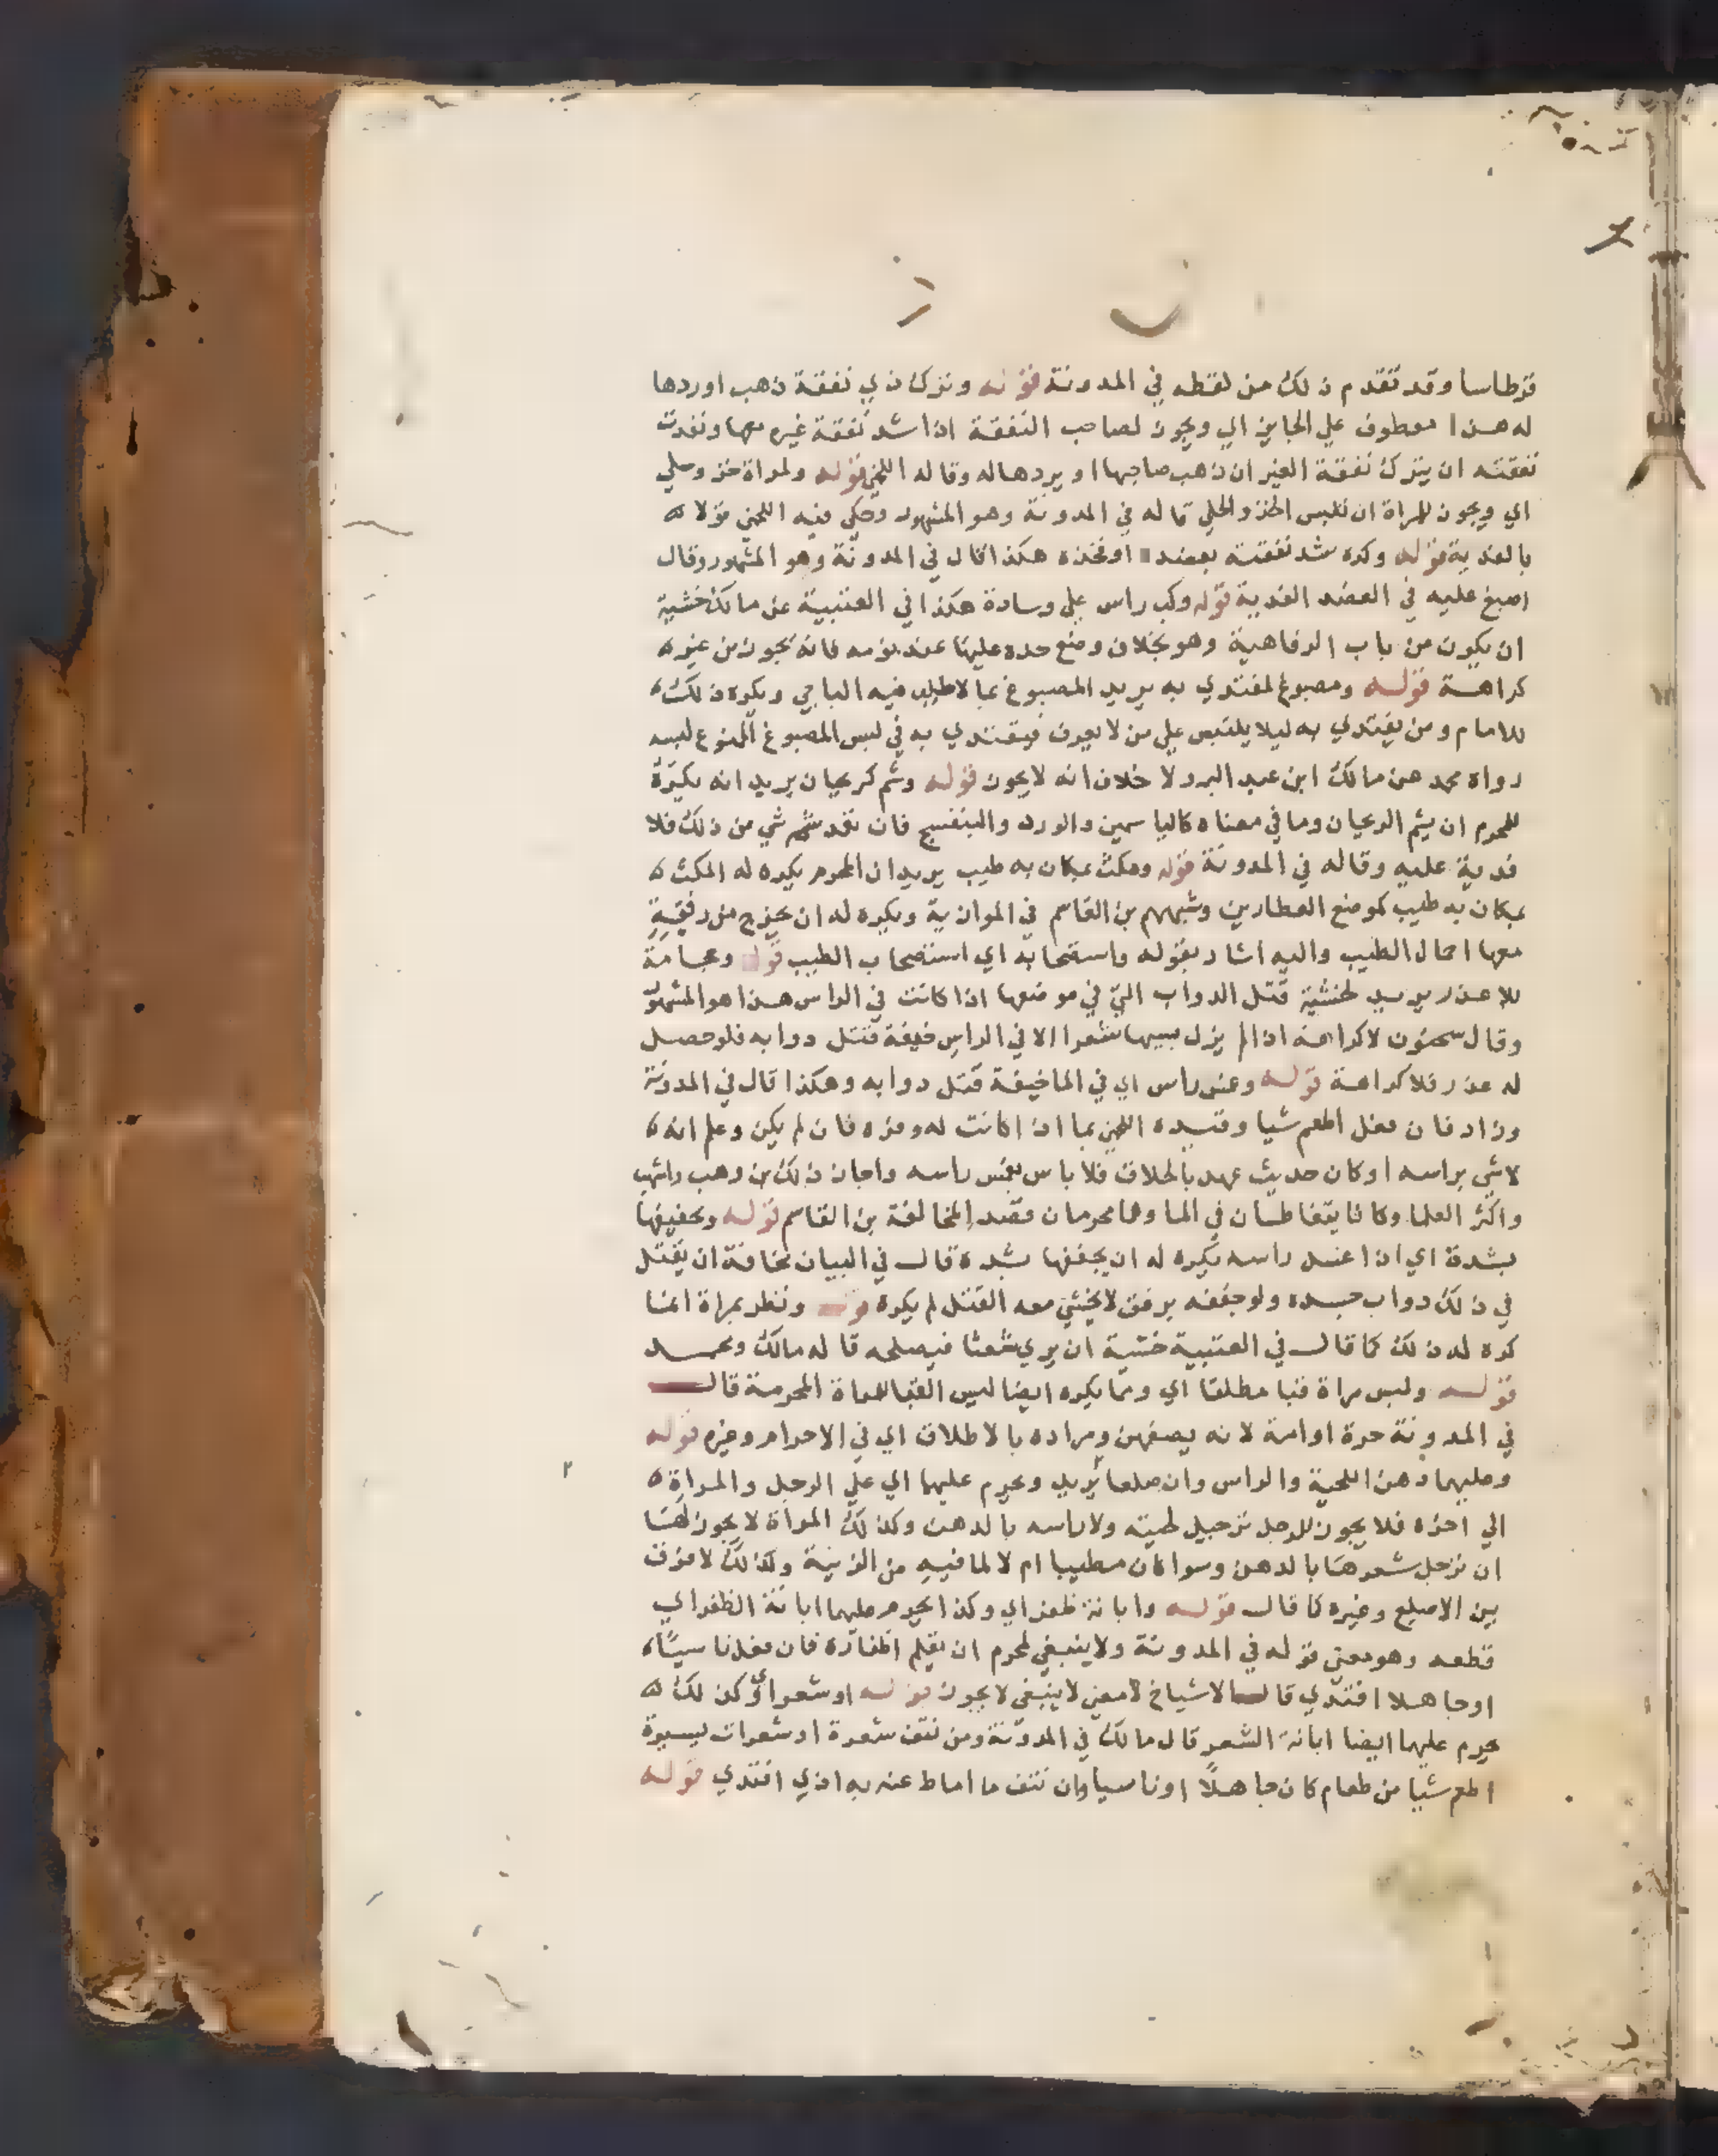 قرطاسا وقد تقدم ذلك من لفظه في المدونة قوله وترك ذي نفقة ذهب اوردها
له هذا معطوف علي الجايز اي ويجوز لصاحب النفقة اذا شد نفقة غيره معها ونفدت
نفقته ان يترك نفقة الغير ان ذهب صاحبها او يردها له وقاله اللخمي قوله ولمراة خز وحلي
اي ويجوز للمراة ان تلبس الخز والحلي قاله في المدونة وهو المشهور وحكي فيه اللخمي قولا
بالفدية قوله وكره شد نفقته بعضد او فخذه هكذا قال في المدونة وهو المشهور وقال
اصبغ عليه في العضد الفدية قوله وكب راس علي وسادة هكذا في العتبية عن مالك خشية
ان يكون من باب الرفاهية وهو بخلاف وضع خده عليها عند نومه فانه يجوز من غير
كراهة قوله ومصبوغ لمقتدي به يريد المصبوغ بما لا طيب فيه الباجي ويكره ذلك
للامام ومن يقتدي به ليلا يلتبس علي من لا يعرف فيقتدي به في لبس المصبوغ الممنوع لبسه
رواه محمد عن مالك ابن عبد البر ولا خلاف انه لا يجوز قوله وشم كريحان يريد انه يكره
للمحرم ان يشم الريحان وما في معناه كالياسمين والورد والبنفسج فان تعمد شم شي من ذلك فلا
فدية عليه وقاله في المدونة قوله ومكث بمكان به طيب يريد ان المحرم يكره له المكث
بمكان به طيب كموضع العطارين وشبههم بن القاسم في الموازية ويكره له ان يخرج من رفقة
معها احمال الطيب واليه اشار بقوله واستصحابه اي استصحاب الطيب قوله وحجامة
بلا عذر يريد لخشية قتل الدواب التي في موضعها اذا كانت في الراس هذا هو المشهور
وقال سحنون لا كراهة اذا لم يزل بسببها شعرا الا في الراس خيفة قتل دوابه فلو حصل
له عذر فلا كراهة قوله وغمس راس اي في الما خيفة قتل دوابه وهكذا قال في المدونة
وزاد فان فعل اطعم شيا وقيده اللخمي بما اذا كانت له وفره فان لم يكن وعلم انه
لا شي براسه او كان حديث عهد بالحلاق فلا باس بغمس راسه واجاز ذلك بن وهب واشهب
واكثر العلما وكانا يتغاطسان في الما وهما محرمان قصد المخالفة بن القاسم قوله وتجفيفها
بشدة اي اذا غسل راسه يكره له ان يجففها بشدة قال في البيان مخافة ان يقتل
في ذلك دواب جسده ولو جففه برفق لا يخشي معه القتل لم يكره قوله ونظر بمراة انما
كره له ذلك كما قال في العتبية خشية ان يري شعثا فيصلحه قاله مالك ومحمد
قوله ولبس مراة قبا مطلقا اي ومما يكره ايضا لبس القبا للمراة المحرمة قال
في المدونة حرة او امة لانه يصفهن ومراده بالاطلاق اي في الاحرام وغيره قوله
وعليهما دهن اللحية والراس وان صلعا يريد ويحرم عليهما اي علي الرجل والمراة
الي اخره فلا يجوز للرجل ترجيل لحيته ولا راسه بالدهن وكذلك المراة لا يجوز لها
ان ترجل شعرها بالدهن وسوا كان مطيبا ام لا لما فيه من الزينة ولذلك لا فرق
بين الاصلع وغيره كما قال قوله وابانة ظفر اي وكذا يحرم عليهما ابانة الظفر اي
قطعه وهو معني قوله في المدونة ولا ينبغي لمحرم ان يقلم اظفاره فان فعل ناسيا
او جاهلا افتدي قال الاشياخ لا معني لا ينبغي لا يجوز قوله او شعر اي وكذلك
يحرم عليهما ايضا ابانة الشعر قال مالك في المدونة ومن نتف شعرة او شعرات يسيرة
اطعم شيا من طعام كان جاهلا او ناسيا وان نتف ما اماط عنه به اذي افتدي قوله